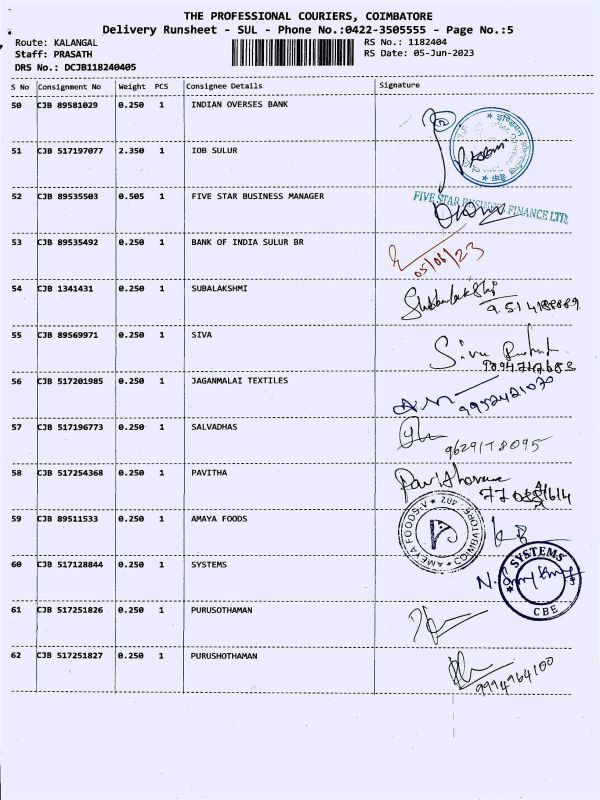 THE PROFESSIONAL COURIERS, COIMBATORE
Delivery Runsheet - SUL - Phone No.:0422-3505555 - Page No.:5
Route: KALANGAL RS No.: 1182404
Staff: PRASATH RS Date: 05-Jun-2023
DRS No.: DCJB118240405
S No Consignment No Weight PCS Consignee Details Signature
50 CJB 89581029 0.250 1 INDIAN OVERSES BANK
51 CJB 517197077 2.350 1 IOB SULUR
52 CJB 89535503 0.505 1 FIVE STAR BUSINESS MANAGER
FIVE STAR BUSINESS FINANCE LTD.
53 CJB 89535492 0.250 1 BANK OF INDIA SULUR BR
05/06/23
54 CJB 1341431 0.250 1 SUBALAKSHMI
Subbulakshmi
55 CJB 89569971 0.250 1 SIVA
Siva
56 CJB 517201985 0.250 1 JAGANMALAI TEXTILES
9952421070
57 CJB 517196773 0.250 1 SALVADHAS
9629178095
58 CJB 517254368 0.250 1 PAVITHA
59 CJB 89511533 0.250 1 AMAYA FOODS
AMEYA FOODS-V ★ 402 ★ COIMBATORE
60 CJB 517128844 0.250 1 SYSTEMS
SYSTEMS
CBE
61 CJB 517251826 0.250 1 PURUSOTHAMAN
62 CJB 517251827 0.250 1 PURUSHOTHAMAN
9994964100